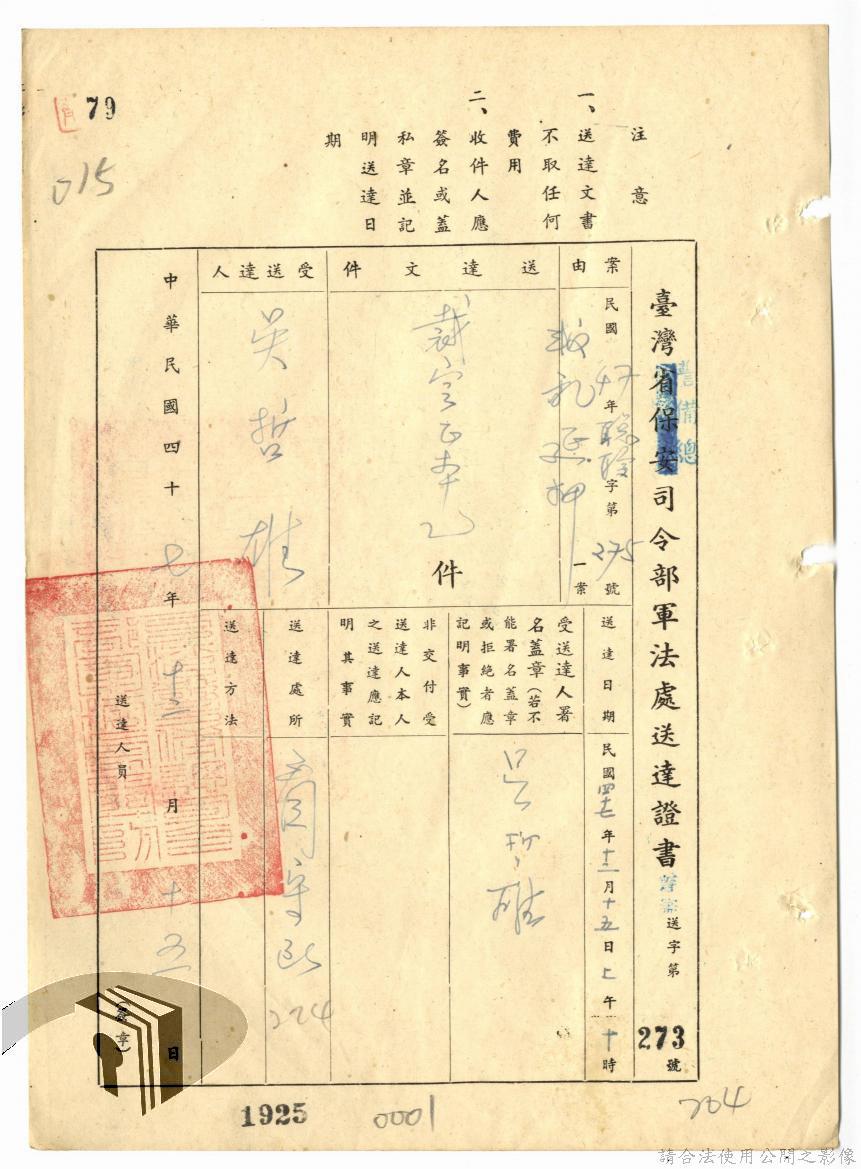 79
015
注意
一、送達文書
不取任何
費用
二、收件人應
簽名或蓋
私章並記
明送達日
期
臺灣省保安司令部軍法處送達證書
警備總
送字第
273
號
案由
民國47年聯合字第275號
叛亂延押一案
送達文件
裁定正本乙件
受送達人
吳哲雄
送達日期
民國四七年十二月十五日上午十時
受送達人署
名蓋章(若不
能署名蓋章
或拒絕者應
記明事實)
吳哲雄
非交付受
送達人本人
之送達應記
明其事實
送達處所
看守所
224
送達方法
中華民國四十七年十二月十五日
送達人員
(簽章)
1925
0001
204
請合法使用公開之影像